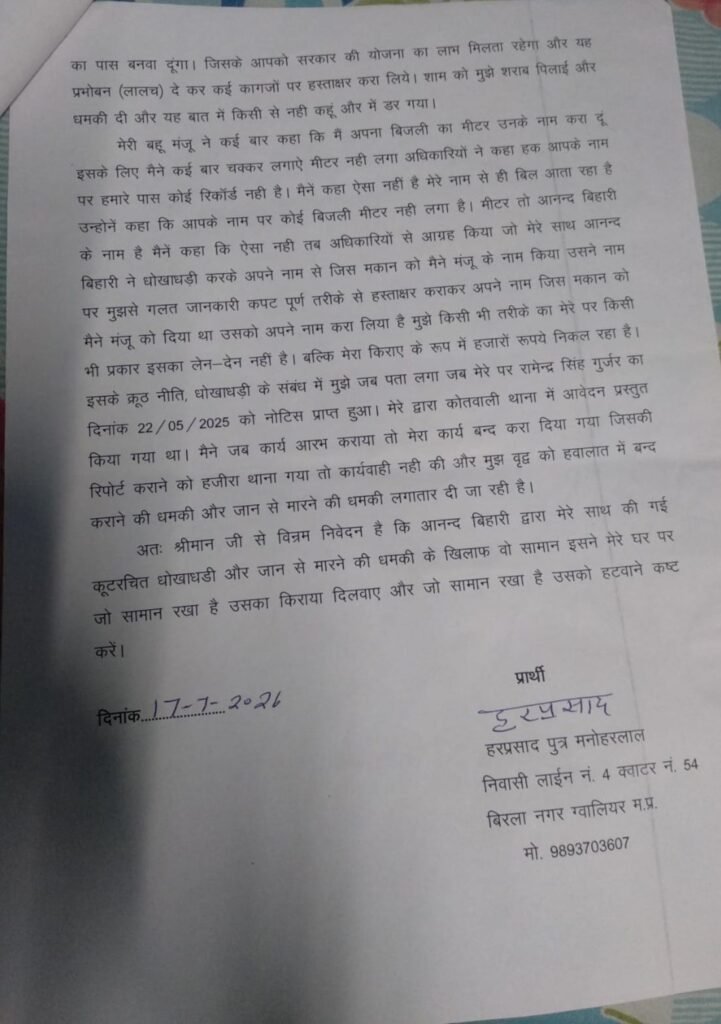 का पास बनवा दूंगा। जिसके आपको सरकार की योजना का लाभ मिलता रहेगा और यह
प्रभोबन (लालच) दे कर कई कागजों पर हस्ताक्षर करा लिये। शाम को मुझे शराब पिलाई और
धमकी दी और यह बात में किसी से नही कहूं और में डर गया।
मेरी बहू मंजू ने कई बार कहा कि मैं अपना बिजली का मीटर उनके नाम करा दूं
इसके लिए मैने कई बार चक्कर लगाऐ मीटर नही लगा अधिकारियों ने कहा हक आपके नाम
पर हमारे पास कोई रिकॉर्ड नही है। मैनें कहा ऐसा नहीं है मेरे नाम से ही बिल आता रहा है
उन्होनें कहा कि आपके नाम पर कोई बिजली मीटर नही लगा है। मीटर तो आनन्द बिहारी
के नाम है मैनें कहा कि ऐसा नही तब अधिकारियों से आग्रह किया जो मेरे साथ आनन्द
बिहारी ने धोखाधड़ी करके अपने नाम से जिस मकान को मैने मंजू के नाम किया उसने नाम
पर मुझसे गलत जानकारी कपट पूर्ण तरीके से हस्ताक्षर कराकर अपने नाम जिस मकान को
मैने मंजू को दिया था उसको अपने नाम करा लिया है मुझे किसी भी तरीके का मेरे पर किसी
भी प्रकार इसका लेन–देन नहीं है। बल्कि मेरा किराए के रूप में हजारों रूपये निकल रहा है।
इसके क्रूठ नीति, धोखाधड़ी के संबंध में मुझे जब पता लगा जब मेरे पर रामेन्द्र सिंह गुर्जर का
दिनांक 22/05/2025 को नोटिस प्राप्त हुआ। मेरे द्वारा कोतवाली थाना में आवेदन प्रस्तुत
किया गया था। मैने जब कार्य आरभ कराया तो मेरा कार्य बन्द करा दिया गया जिसकी
रिपोर्ट कराने को हजीरा थाना गया तो कार्यवाही नही की और मुझ वृद्व को हवालात में बन्द
कराने की धमकी और जान से मारने की धमकी लगातार दी जा रही है।
अतः श्रीमान जी से विन्रम निवेदन है कि आनन्द बिहारी द्वारा मेरे साथ की गई
कूटरचित धोखाधडी और जान से मारने की धमकी के खिलाफ वो सामान इसने मेरे घर पर
जो सामान रखा है उसका किराया दिलवाए और जो सामान रखा है उसको हटवाने कष्ट
करें।
प्रार्थी
दिनांक 17-7-2026
हरप्रसाद
हरप्रसाद पुत्र मनोहरलाल
निवासी लाईन नं. 4 क्वाटर नं. 54
बिरला नगर ग्वालियर म.प्र.
मो. 9893703607